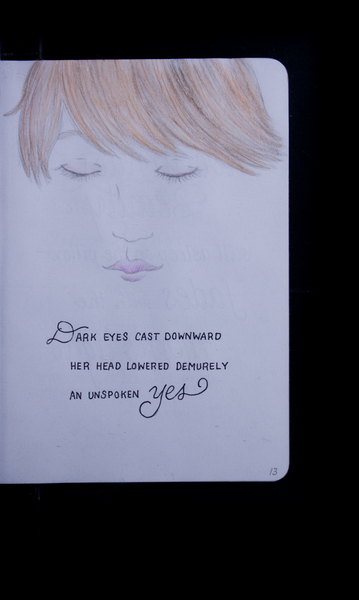 Dark eyes cast downward
her head lowered demurely
an unspoken yes
13